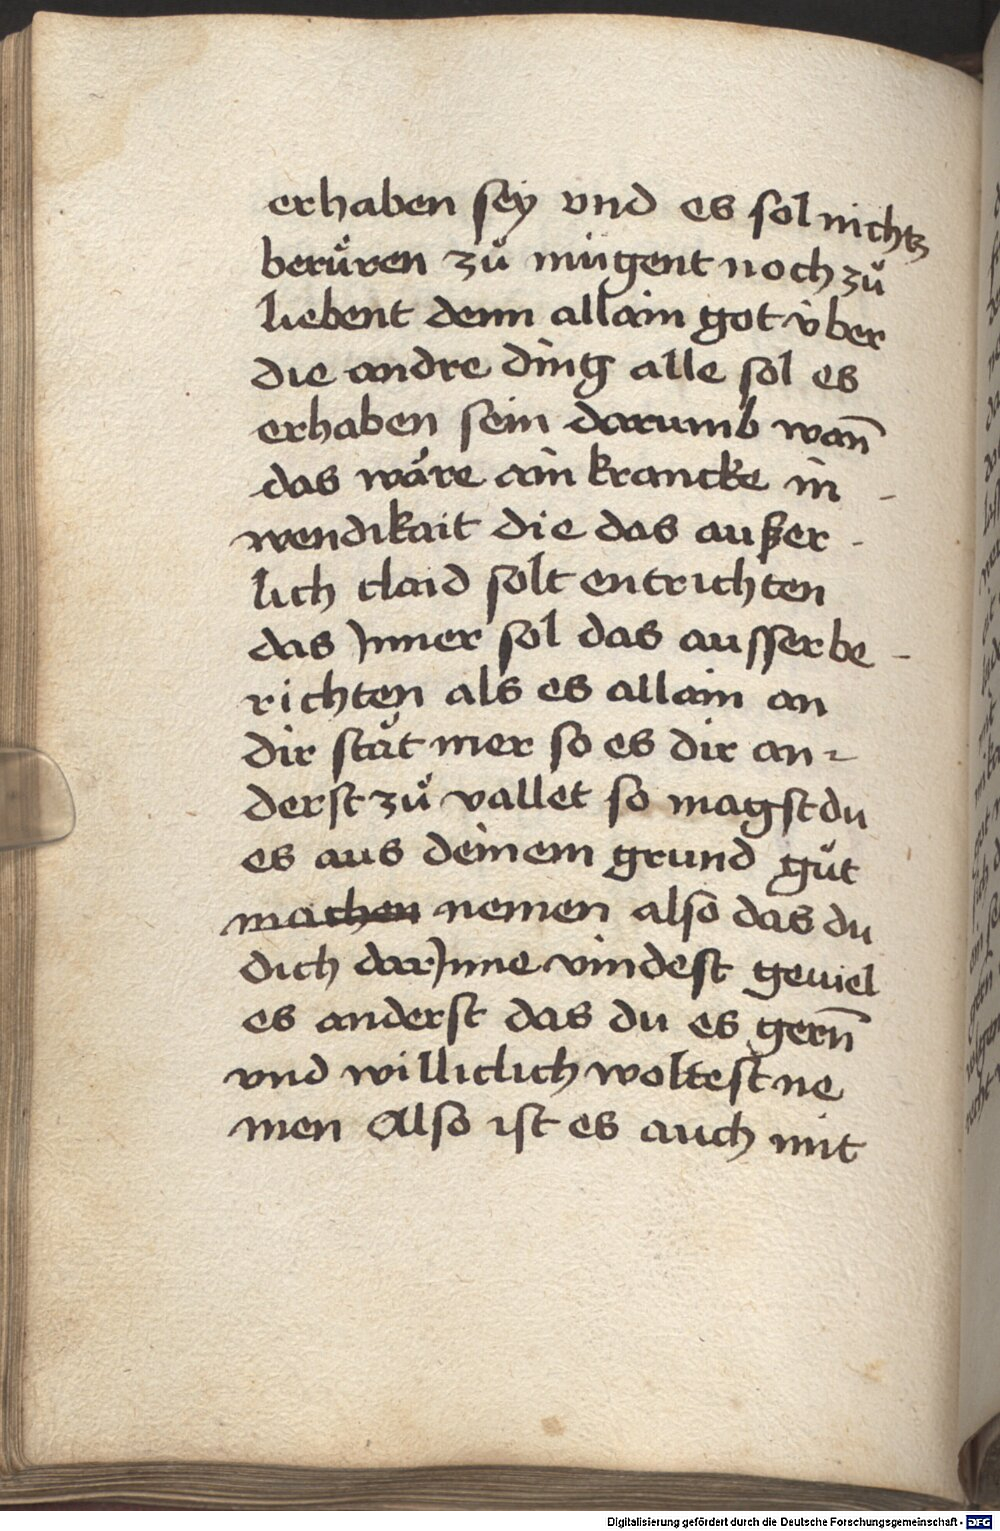 erhaben sey vnd es sol nichtz
berůren zů mügent noch zů
liebent denn allain got v̇ber
die andre ding alle sol es
erhaben sein darumb wan̄
das wäre ain krancke in -
wendikait die das außer -
lich claid solt entrichten
das Jnner sol das ausser be -
richten als es allain an
dir stät mer so es dir an -
derst zů vallet so magst du
es aus deinem grund gůt
machen nemen also das du
dich darJnne vindest geuiel
es anderst das du es gern̄
vnd williclich woltest ne
men Also ist es auch mit
Digitalisierung gefördert durch die Deutsche Forschungsgemeinschaft - DFG